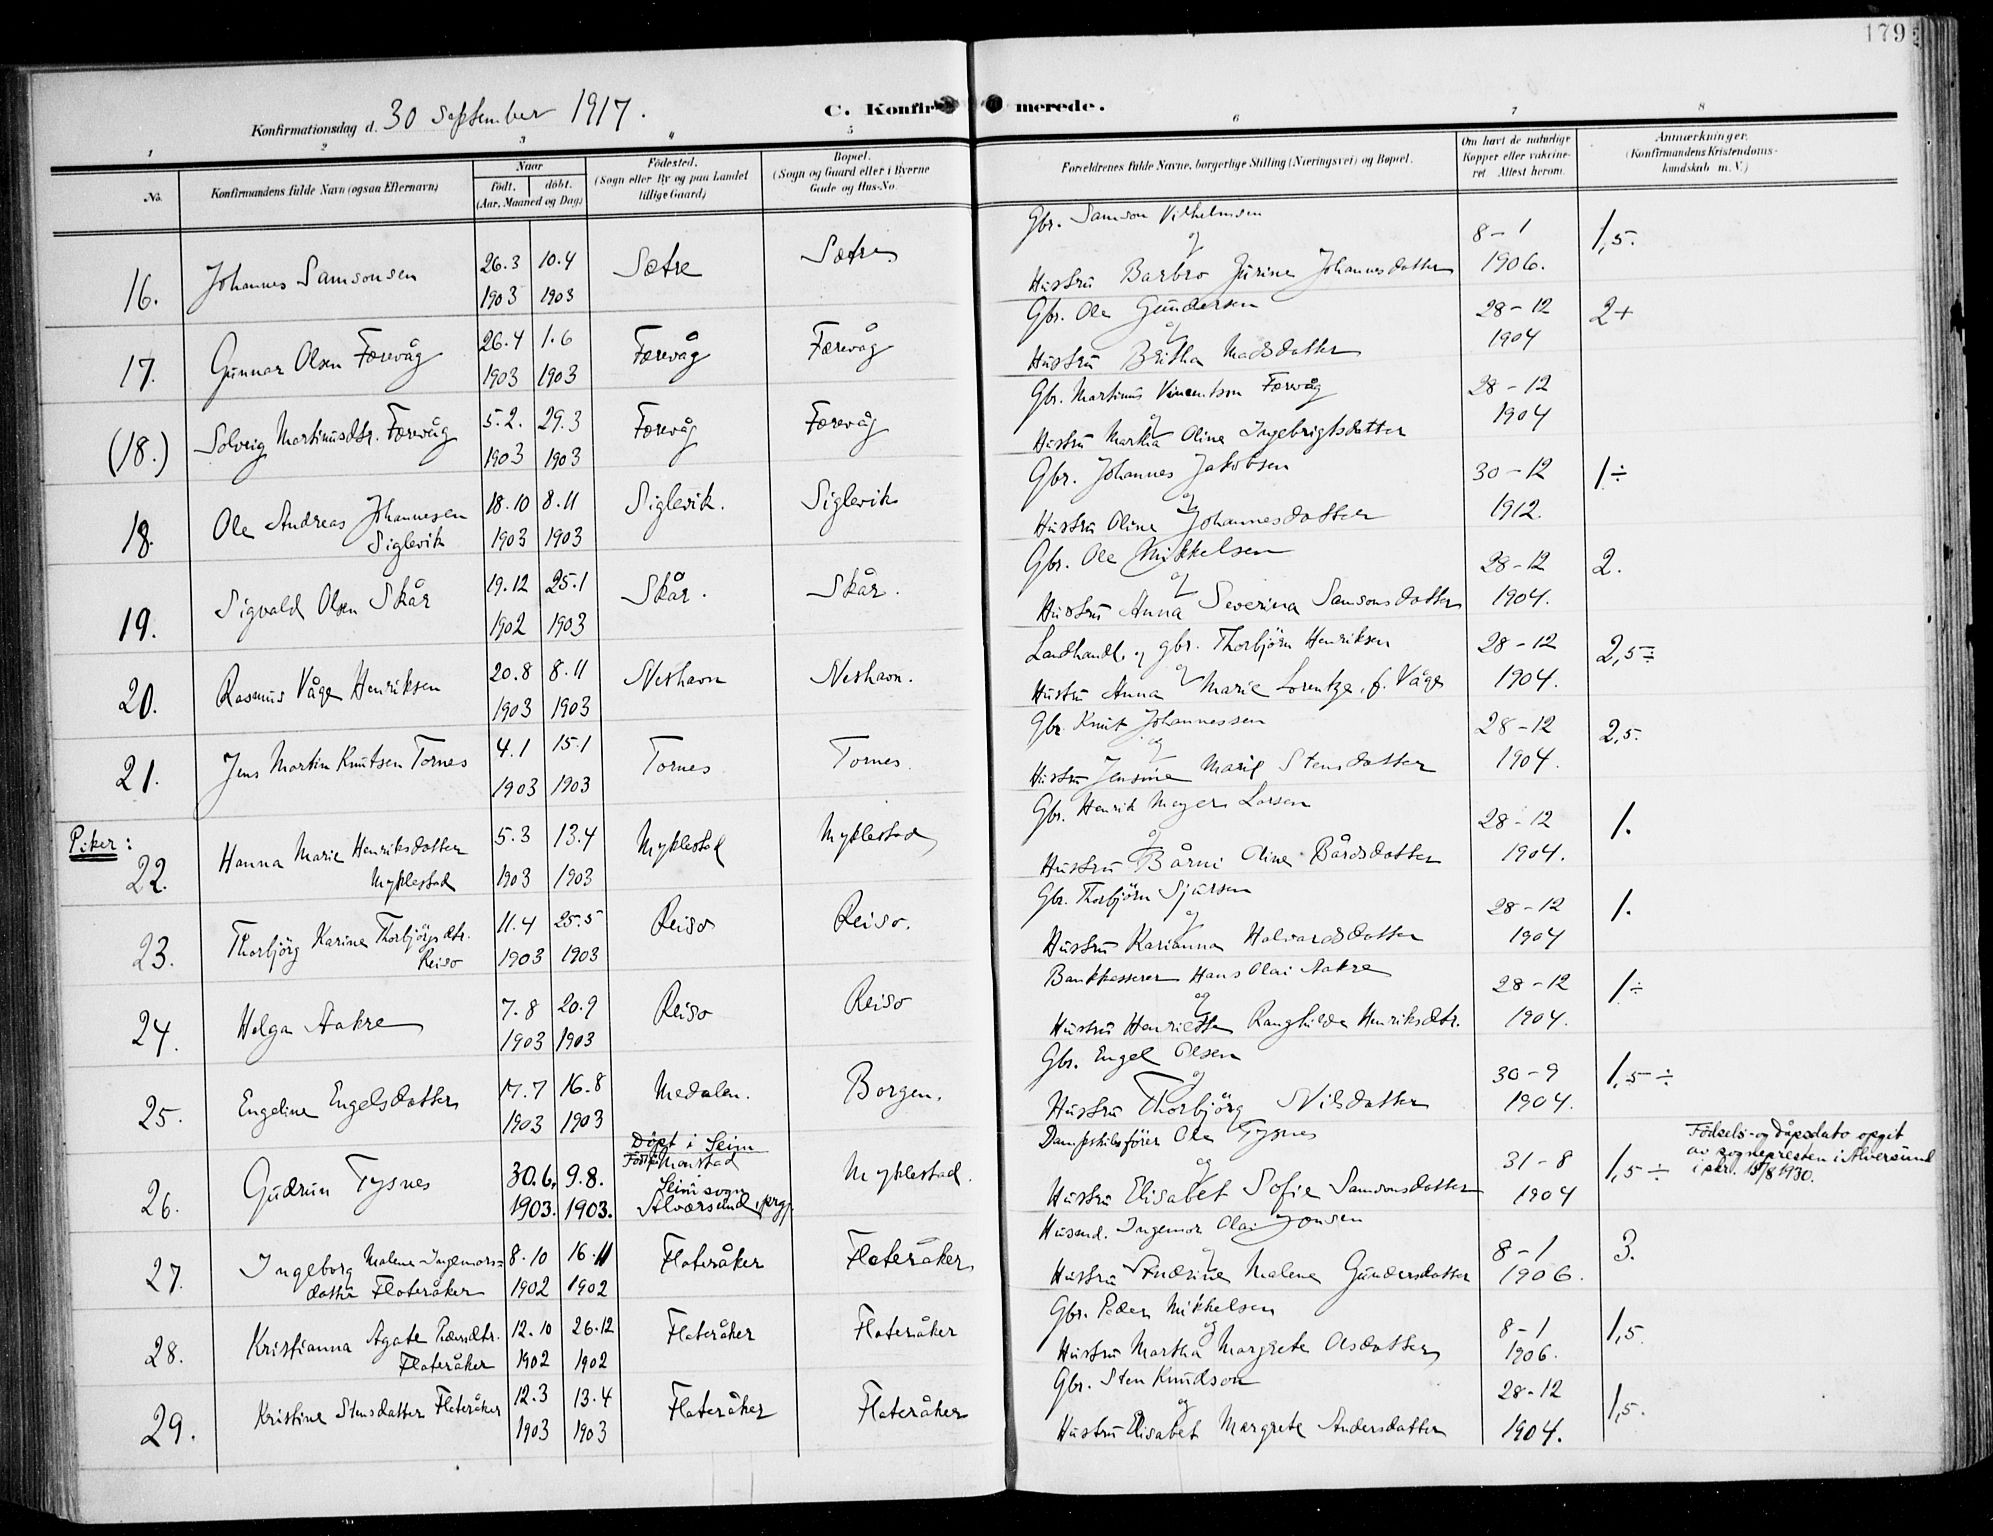 179
Konfirmationsdag d. 30 September 1917.
C. Konfirmerede.
1 2 3 4 5 6 7 8
No.
Konfirmandens fulde Navn (ogsaa Efternavn)
Naar
født. døbt.
(Aar, Maaned og Dag)
Fødested.
(Sogn eller By og paa Landet
tillige Gaard)
Bopæl.
(Sogn og Gaard eller i Byerne
Gade og Hus-No.
Forældrenes fulde Navne, borgerlige Stilling (Næringsvei) og Bopæl.
Om havt de naturlige
Kopper eller vakcine-
ret Attest herom.
Anmærkninger.
(Konfirmandens Kristendoms-
kundskab m. V.)
Gbr. Samson Vilhelmsen
16. Johannes Samsonsen 26.3 1903 10.4 1903 Sætre Sætre og 8-1 1906. 1,5.
Hustru Barbro Jürine Johannesdatter
Gbr. Ole Gundersen
17. Gunnar Olsen Færevåg 26.4 1903 1.6 1903 Færevåg Færevåg og 28-12 1904 2+
Hustru Britha Madsdatter
Gbr. Martinus Vincentsen Færevåg
(18.) Solveig Martinusdtr. Færevåg 5.2. 1903 29.3 1903 Færevåg Færevåg og 28-12 1904
Hustru Martha Oline Ingebrigtsdatter
Gbr. Johannes Jakobsen
18. Ole Andreas Johannesen 18.10 1903 8.11 1903 Siglevik. Siglevik og 30-12 1912. 1÷
Siglevik
Hustru Oline Johannesdatter
Gbr. Ole Mikkelsen
19. Sigvald Olsen Skår 19.12 1902 25.1 1903 Skår. Skår. og 28-12 1904. 2.
Hustru Anna Severina Samsonsdatter
Landhandl. og gbr. Thorbjörn Henriksen
20. Rasmus Våge Henriksen 20.8 1903 8.11 1903 Neshavn Neshavn. og 28-12 1904. 2,5÷
Hustru Anna Marie Lorentze, f. Våge
Gbr. Knut Johannessen
21. Jens Martin Knutsen Tornes 4.1 1903 15.1 1903 Tornes Tornes. og 28-12 1904. 2,5.
Hustru Jensine Marie Stensdatter
Piker:
Gbr. Henrik Meyer Larsen
22. Hanna Marie Henriksdatter 5.3 1903 13.4 1903 Myklestad Myklestad og 28-12 1904. 1.
Myklestad
Hustru Bårni Oline Bårdsdatter
Gbr. Thorbjörn Sjursen
23. Thorbjörg Karine Thorbjörgsdtr. 11.4 1903 25.5 1903 Reiso Reiso. og 28-12 1904 1.
Reiso
Hustru Karianna Halvardsdatter
Bankkasserer Hans Olai Aakre
24. Helga Aakre 7.8 1903 20.9 1903 Reiso Reiso og 28-12 1904. 1÷
Hustru Henriette Ranghilda Henriksdtr.
Gbr. Engel Olsen
25. Engeline Engelsdatter 17.7 1903 16.8 1903 Medalen. Borgen. og 30-9 1904. 1,5÷
Hustru Thorbjörg Nilsdatter
Dampskibsförer Ole Tysnes
26. Gudrun Tysnes 30.6. 1903. 9.8. 1903. Döpt i Seim
Född Monstad
Seim sogn
Alversund prgj. Myklestad. og 31-8 1904 1,5÷ Födsels- og dåpsdato opgit
av sognepresten i Alversund
i skr. 15/8 1930.
Hustru Elisabet Sofie Samsonsdatter
Husmd. Ingemor Olai Jonsen
27. Ingeborg Malene Ingemors- 8.10 1902 16.11 1902 Flateråker Flateråker og 8-1 1906. 3.
datter Flateråker
Hustru Andrine Malene Gundersdatter
Gbr. Peder Mikkelsen
28. Kristianna Agate Pedersdtr. 12.10 1902 26.12 1902 Flateråker Flateråker og 8-1 1906. 1,5.
Flateråker
Hustru Martha Margrete Olsdatter
Gbr. Sten Knudson
29. Kristine Stensdatter Flateråker 12.3 1903 13.4 1903 Flateråker Flateråker og 28-12 1904. 1,5.
Hustru Elisabet Margrete Andersdatter